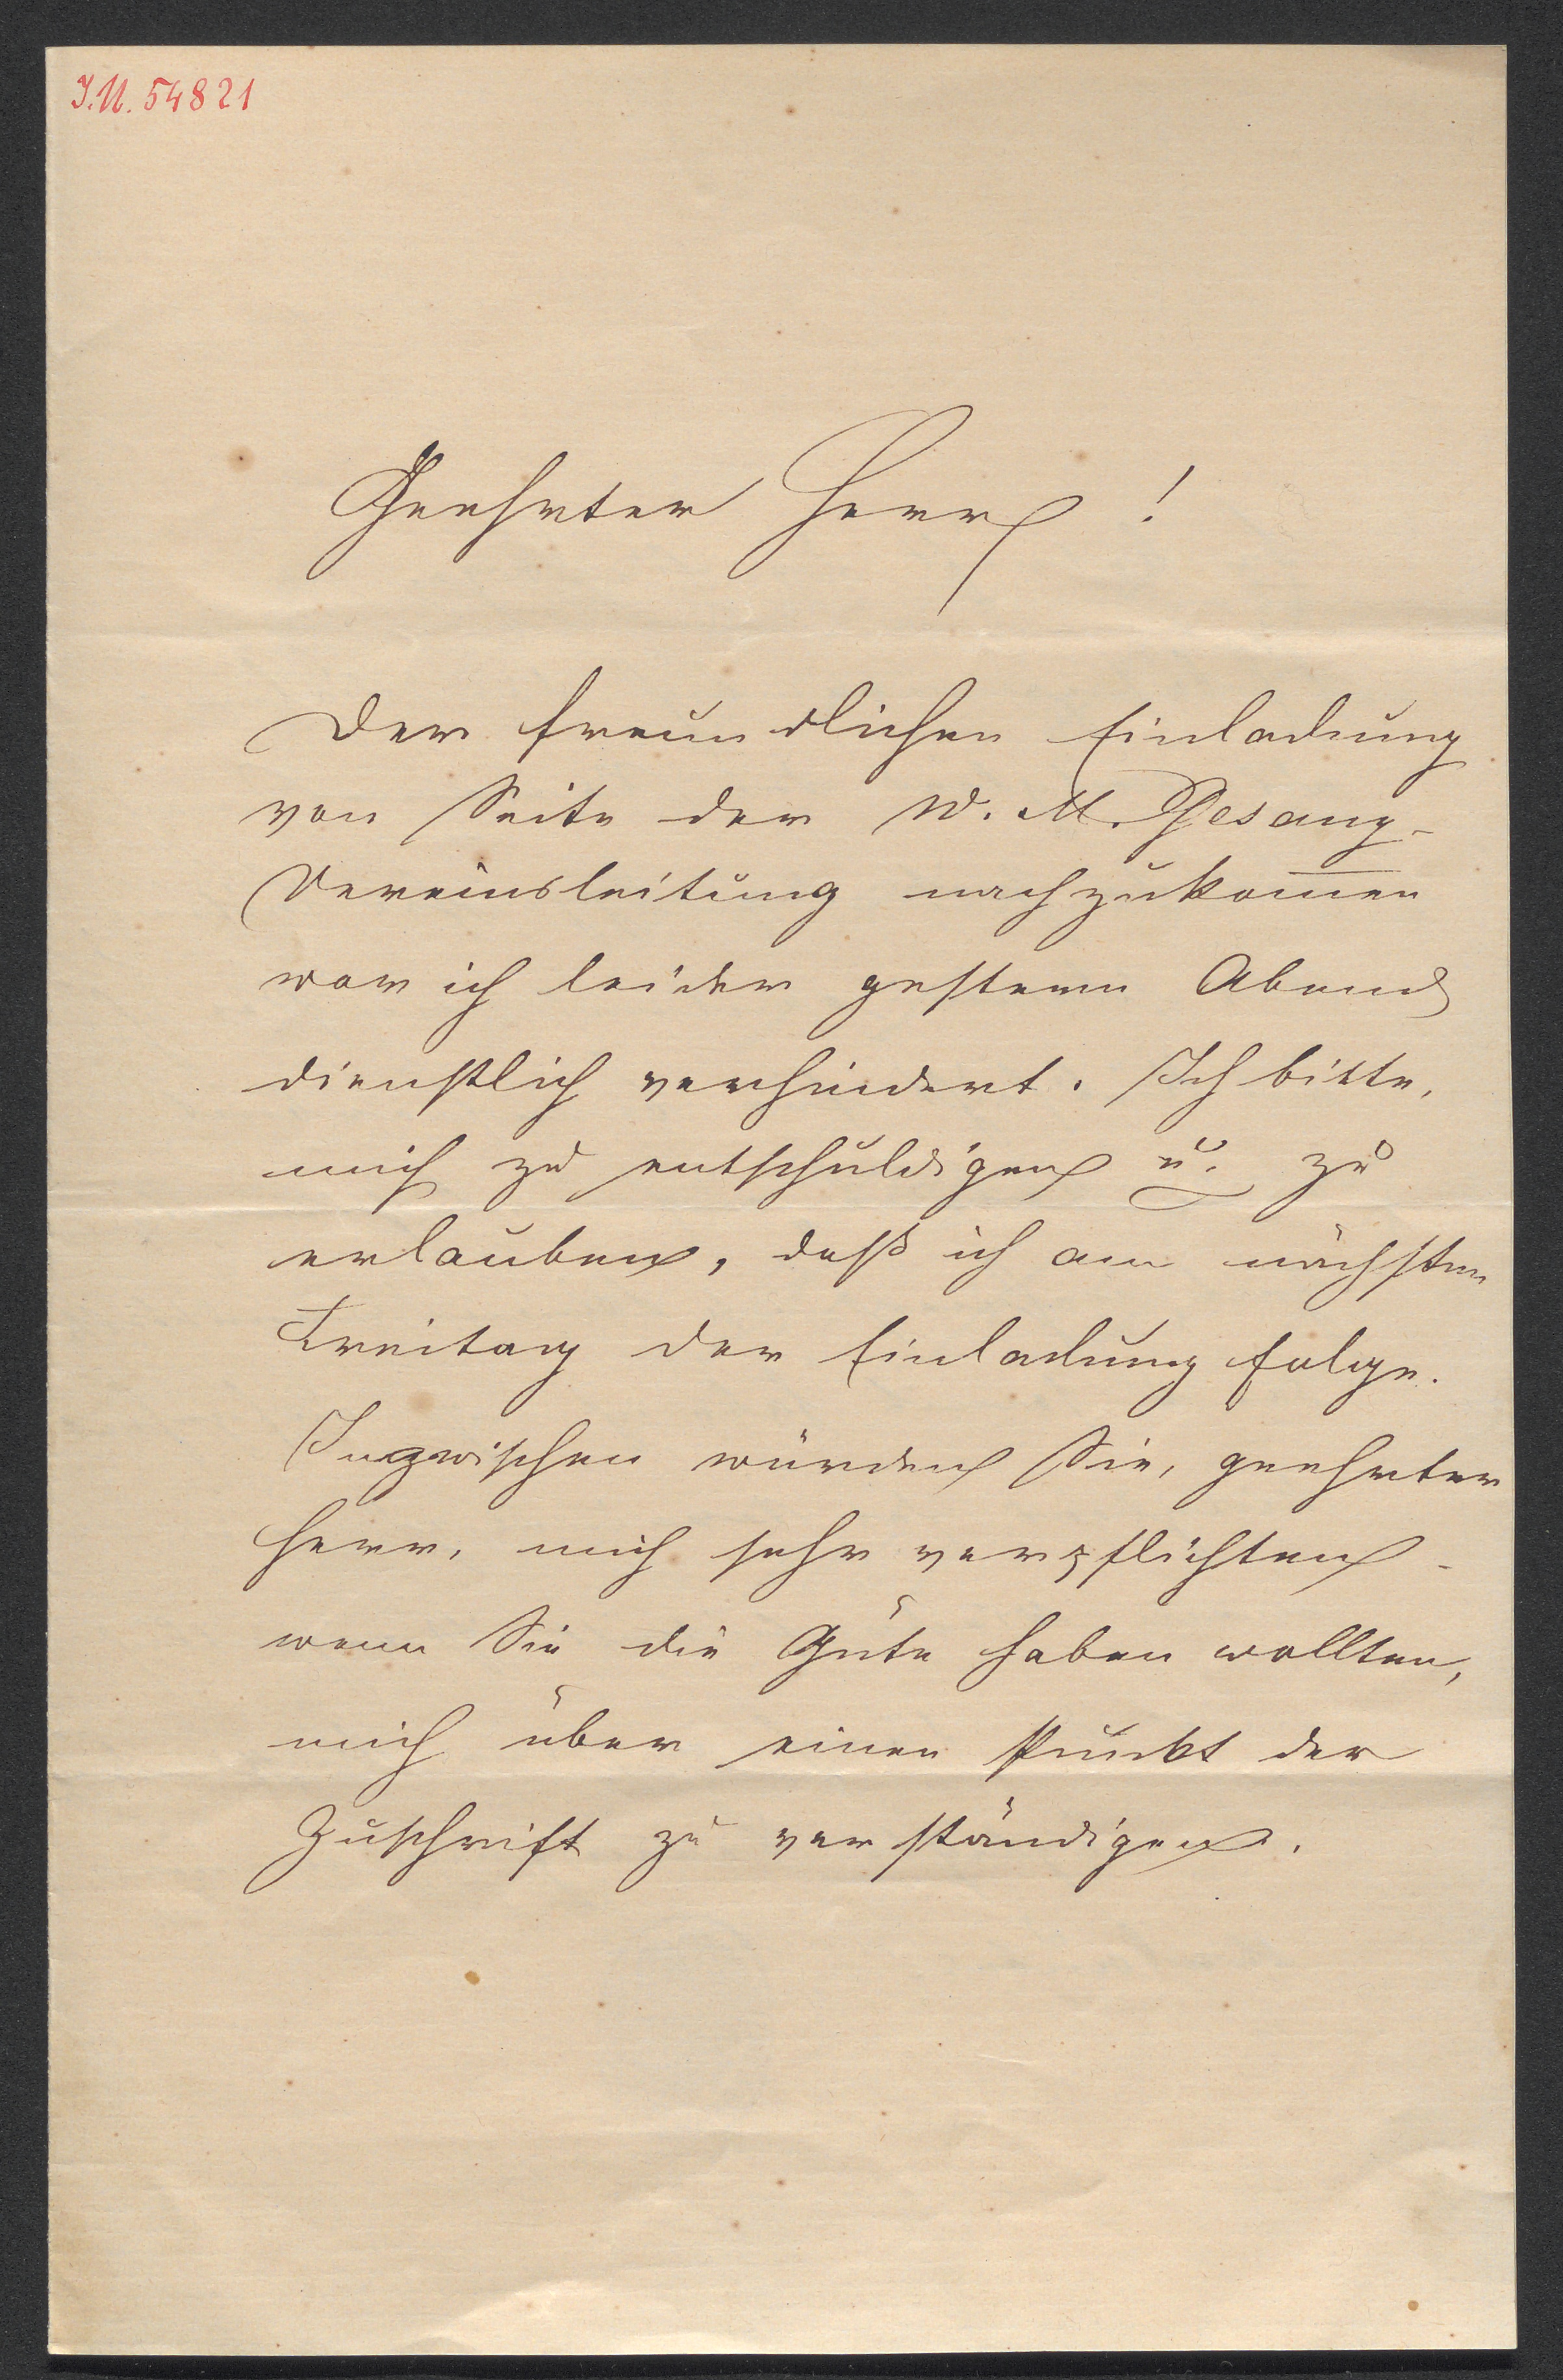 I.N. 54821
Geehrter Herr!
Der freundlichen Einladung
von Seite der W. M. Gesang-
Vereinsleitung nachzukom̅en
war ich leider gestern Abend
dienstlich verhindert. Ich bitte,
mich zu entschuldigen u. zu
erlauben, daß ich am nächsten
Freitag der Einladung folge.
Inzwischen würden Sie, geehrter
Herr, mich sehr verpflichten -
wenn Sie die Güte haben wollten,
mich über einen Punkt der
Zuschrift zu verständigen.